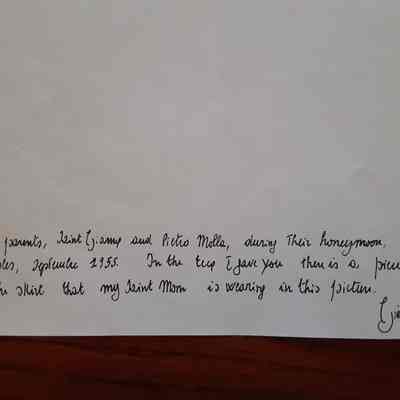 parents, Saint Gianna and Pietro Molla, during Their honeymoon.
September 1955. In the I gave you there is a
skirt that my Saint Mom is wearing in this picture.